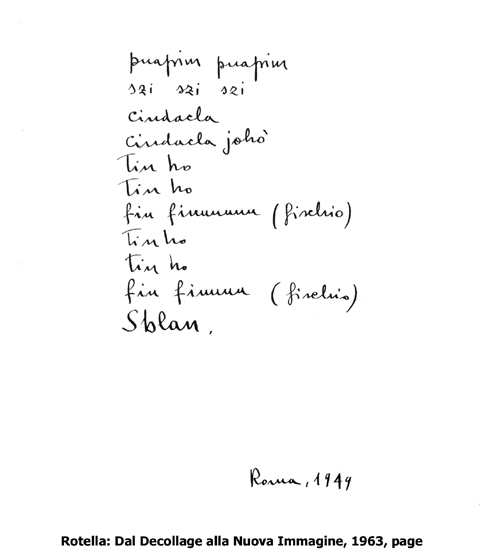 puaprim puaprim
szi szi szi
cindacla
cindacla johò
Tin ho
Tin ho
fiu fiuuuuuu (fischio)
Tin ho
tin ho
fiu fiuuuu (fischio)
Sblan.
Roma, 1949
Rotella: Dal Decollage alla Nuova Immagine, 1963, page